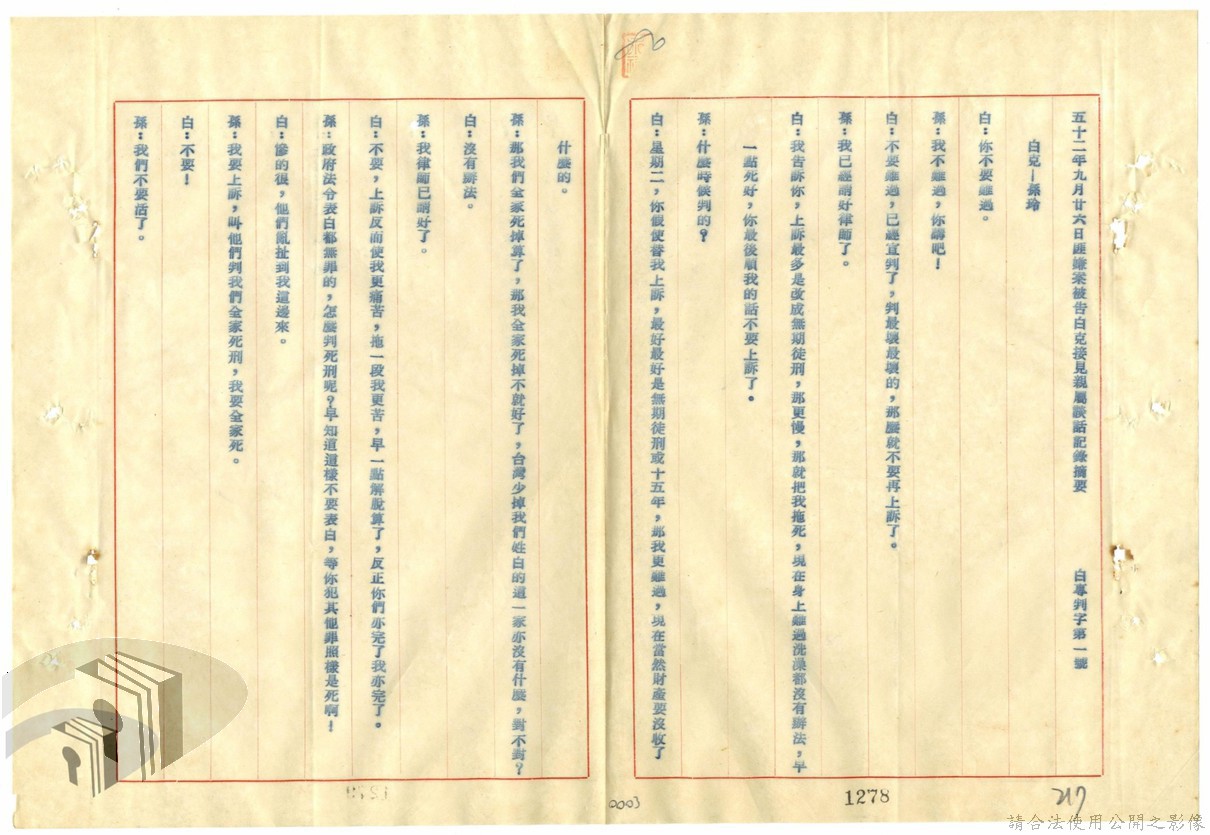 五十二年九月廿六日匪嫌案被告白克接見親屬談話記錄摘要　白專判字第一號
白克—孫玲
白：你不要難過。
孫：我不難過，你講吧！
白：不要難過，已經宣判了，判最壞最壞的，那麼就不要再上訴了。
孫：我已經請好律師了。
白：我告訴你，上訴最多是改成無期徒刑，那更慢，那就把我拖死，現在身上難過洗澡都沒有辦法，早
一點死好，你最後順我的話不要上訴了。
孫：什麼時候判的？
白：星期二，你假使替我上訴，最好最好是無期徒刑或十五年，那我更難過，現在當然財產要沒收了
什麼的。
孫：那我們全家死掉算了，那我全家死掉不就好了，台灣少掉我們姓白的這一家亦沒有什麼，對不對？
白：沒有辦法。
孫：我律師已請好了。
白：不要，上訴反而使我更痛苦，拖一段我更苦，早一點解脫算了，反正你們亦完了我亦完了。
孫：政府法令表白都無罪的，怎麼判死刑呢？早知道這樣不要表白，等你犯其他罪照樣是死啊！
白：慘的很，他們亂扯到我這邊來。
孫：我要上訴，叫他們判我們全家死刑，我要全家死。
白：不要！
孫：我們不要活了。
0003
1278
217
請合法使用公開之影像